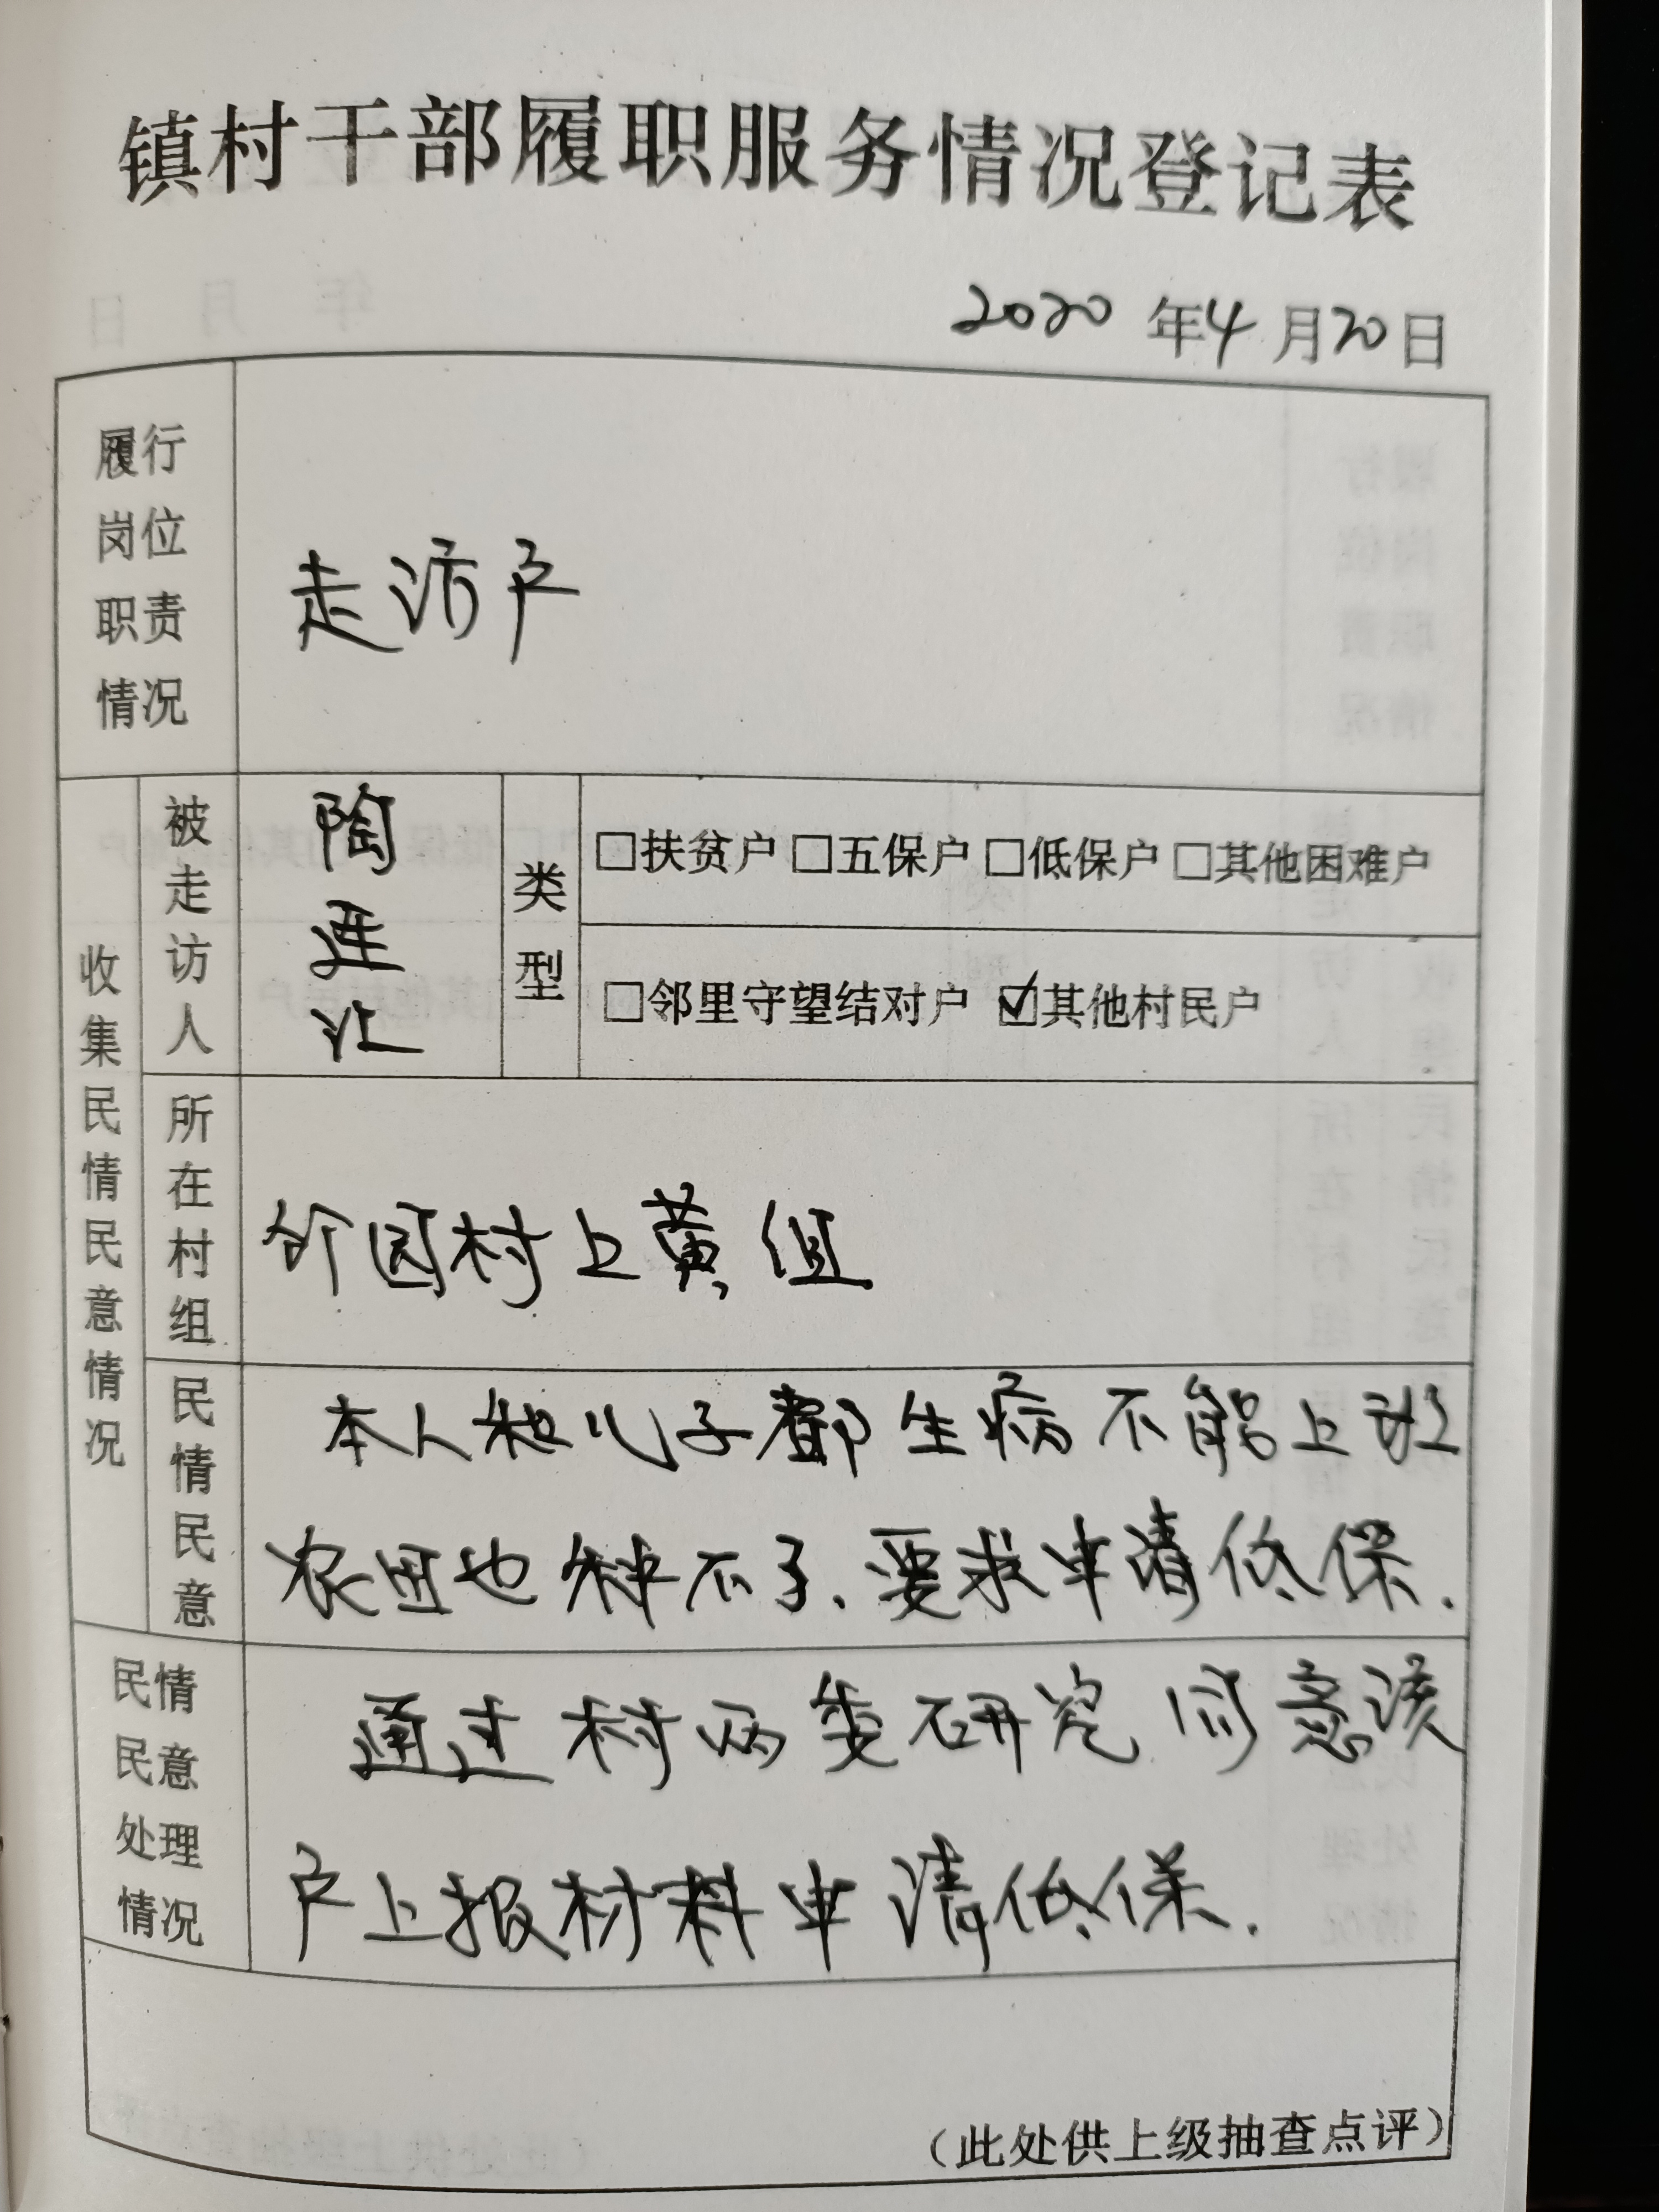 镇村干部履职服务情况登记表
2020年4月20日
履行
岗位
职责
情况
走访户
收集民情民意情况
被走访人
陶莲
类型
□扶贫户 □五保户 □低保户 □其他困难户
□邻里守望结对户 ☑其他村民户
所在村组
园村上黄组
民情民意
本人和儿子都生病不能上班
农田也种不了.要求申请低保.
民情
民意
处理
情况
通过村两委研究同意该
户上报材料申请低保.
（此处供上级抽查点评）